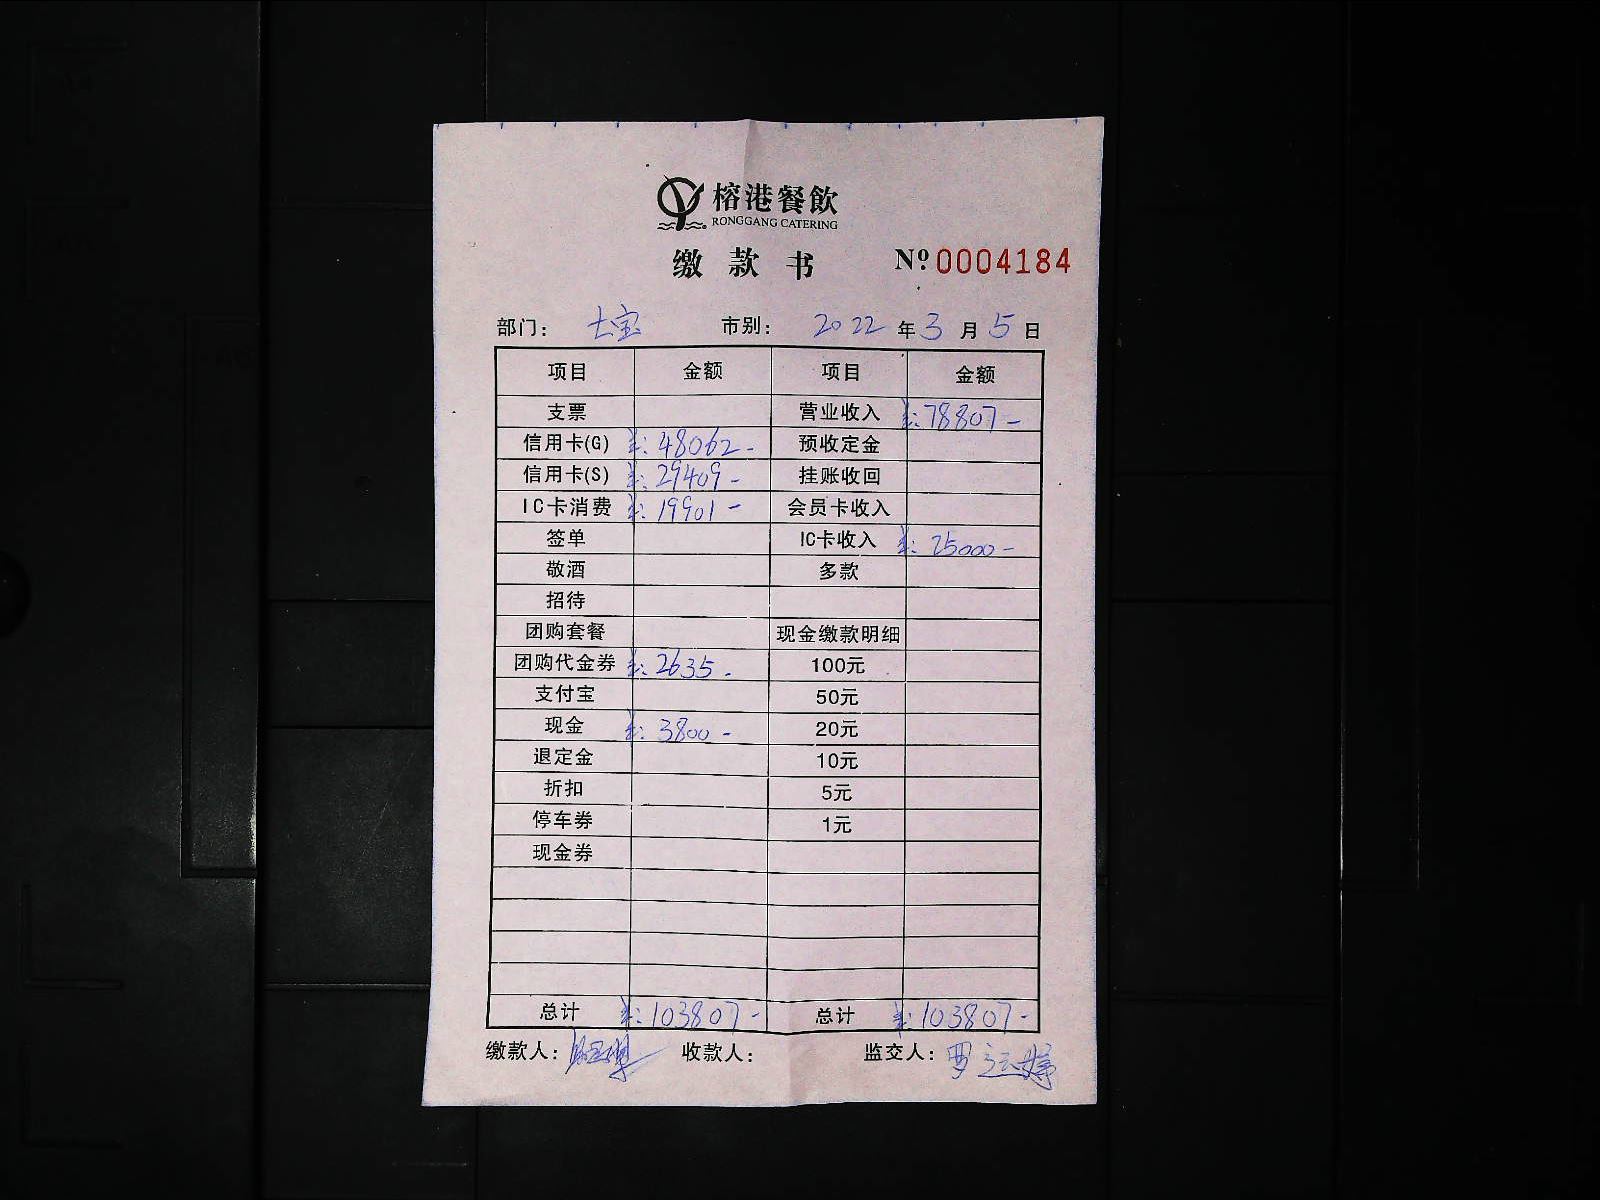 榕港餐飲
RONGGANG CATERING
缴款书 Nº 0004184
部门: 七宝 市别: 2022年3月5日
项目 金额 项目 金额
支票 营业收入 ¥:78807-
信用卡(G) ¥:48062- 预收定金
信用卡(S) ¥:29409- 挂账收回
IC卡消费 ¥:19901- 会员卡收入
签单 IC卡收入 ¥:25000-
敬酒 多款
招待
团购套餐 现金缴款明细
团购代金券 ¥:2635- 100元
支付宝 50元
现金 ¥:3800- 20元
退定金 10元
折扣 5元
停车券 1元
现金券
总计 ¥:103807- 总计 ¥:103807-
缴款人: 收款人: 监交人: